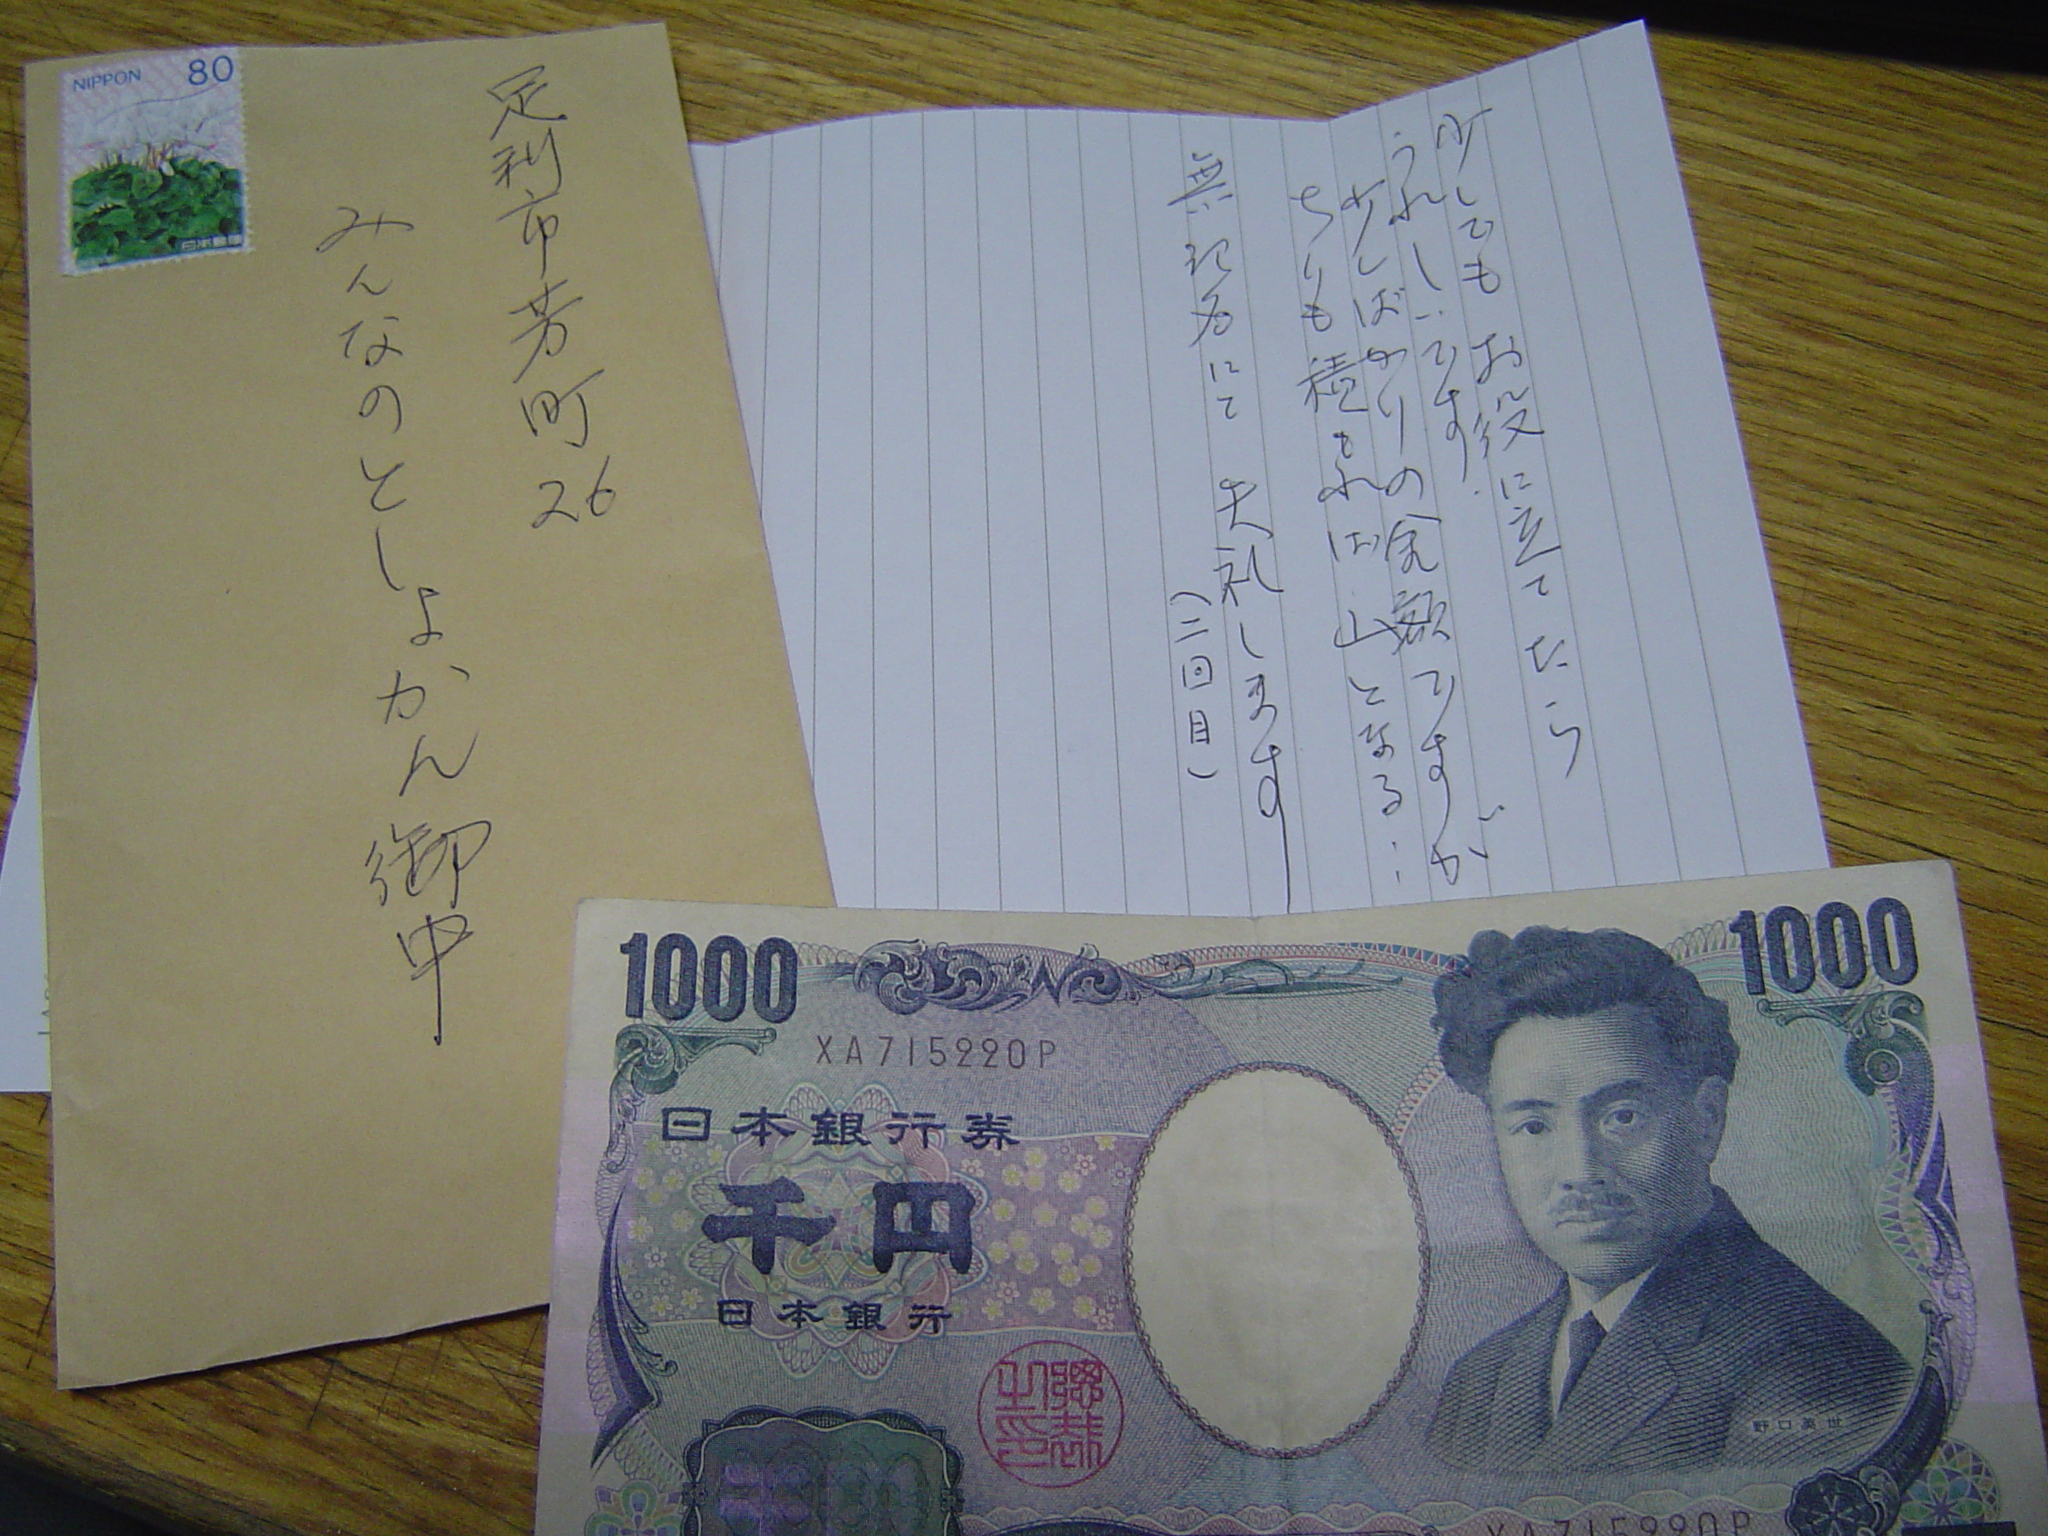 NIPPON 80
日本郵便
足利市芳町26
みんなのとしょかん御中
少しでもお役に立てたら
うれしいです.
少しばかりの金額ですが
ちりも積もれば山となる…
無記名にて失礼します
(二回目)
1000
1000
XA715220P
日本銀行券
千円
日本銀行
野口英世
XA715220P